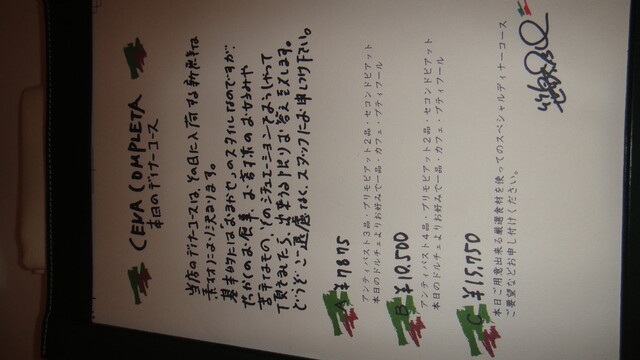 CENA COMPLETA
本日のディナーコース
当店のディナーコースは、その日に入荷する新鮮な
素材により決まります。
基本的には「おまかせ」のスタイルなのですが、
せっかくのお食事、お客様のお好みや
苦手なもの、そのシチュエーションでおっしゃって
頂きましたら、出来うる限りお答えをします。
どうぞ、ご遠慮なく、スタッフにお申しつけ下さい。
A ¥7875
アンティパスト3品・プリモピアット2品・セコンドピアット
本日のドルチェよりお好みで一品・カフェ・プティフール
B ¥10,500
アンティパスト4品・プリモピアット2品・セコンドピアット
本日のドルチェよりお好みで一品・カフェ・プティフール
C ¥15,750
本日ご用意出来る厳選食材を使ってのスペシャルディナーコース
ご要望などお申し付けください。